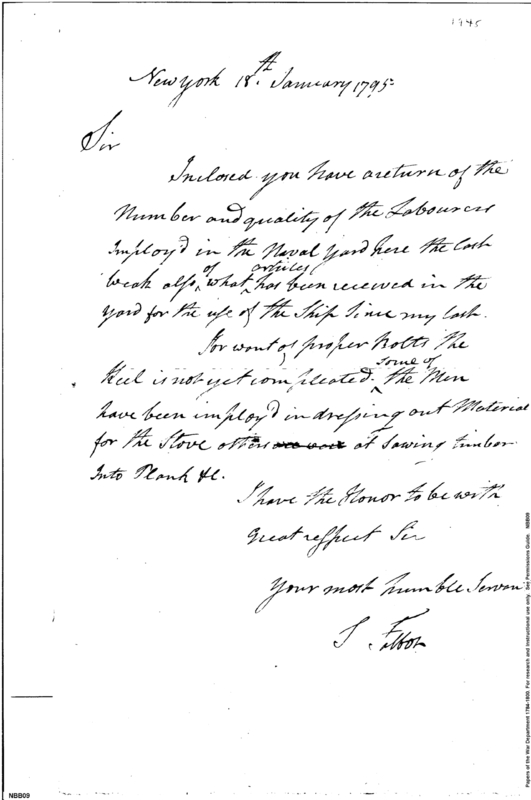 1945
New york 18th January 1795
Sir
Inclosed you have a return of the
Number and quality of the Labourers
Imploy'd in the Naval Yard here the Last
weak also of what articles has been received in the
yard for the use of the Ship Since my last.
For want of proper Bolts the
Keel is not yet compleated. some of the Men
have been imploy'd in dressing out Material
for the Stove others at Sawing timber
Into Plank &c.
I have the Honor to be with
Great respect Sir
Your most humble Servan
S Talbot
NBB09
Papers of the War Department 1784-1800. For research and instructional use only. See Permissions Guide. NBB09